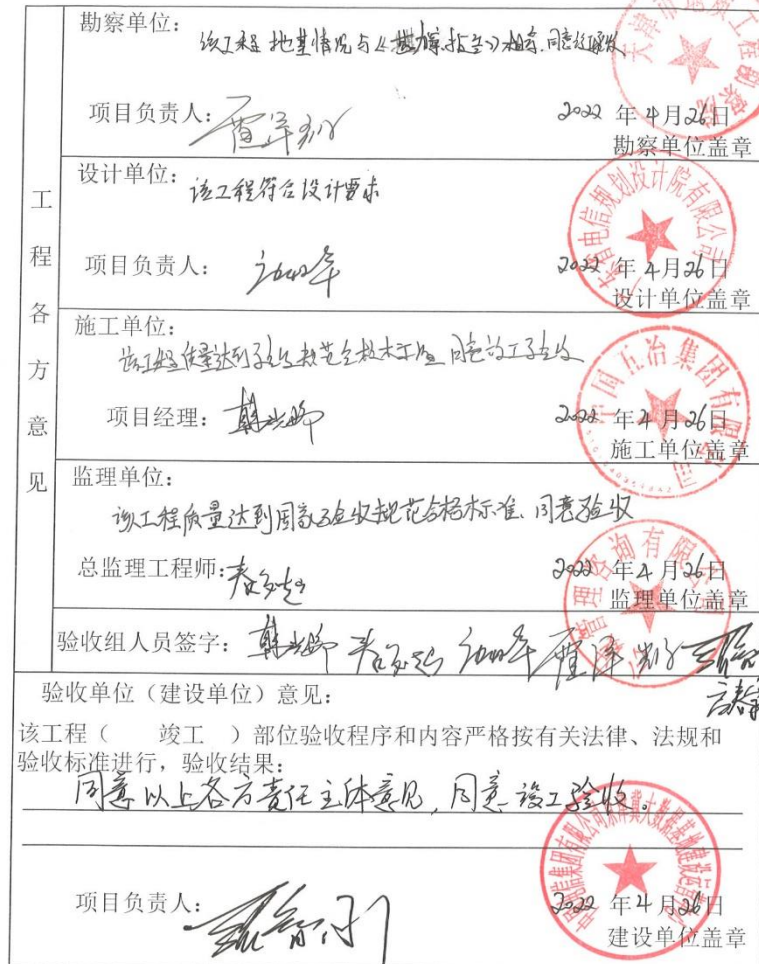 勘察单位:
该工程地基情况与《勘察报告》相符,同意验收
项目负责人:
2022 年 4 月 26 日
勘察单位盖章
天津市地质工程勘察院
工程各方意见
设计单位:
该工程符合设计要求
项目负责人:
2022 年 4 月 26 日
设计单位盖章
省电信规划设计院有限公司
施工单位:
该工程质量达到验收规范合格标准 同意竣工验收
项目经理:
2022 年 4 月 26 日
施工单位盖章
中国五冶集团有限公司
监理单位:
该工程质量达到国家验收规范合格标准、同意验收
总监理工程师:
2022 年 4 月 26 日
监理单位盖章
管理咨询有限公
验收组人员签字:
验收单位(建设单位)意见:
该工程( 竣工 )部位验收程序和内容严格按有关法律、法规和
验收标准进行,验收结果:
同意以上各方责任主体意见,同意竣工验收。
项目负责人:
2022 年 4 月 26 日
建设单位盖章